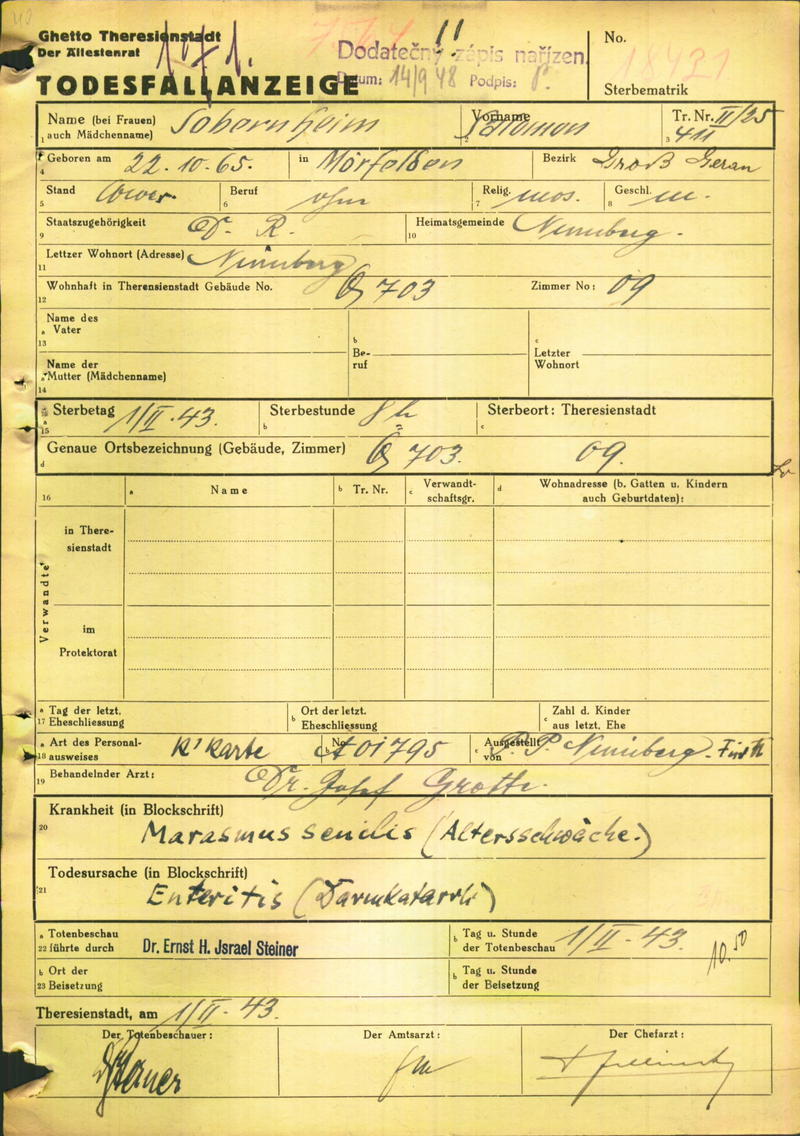 Ghetto Theresienstadt
Der Ältestenrat
TODESFALLANZEIGE
Dodatečný zápis nařízen.
Datum: 14/9 48 Podpis:
No. 18421
Sterbematrik
Name (bei Frauen) Sobernheim
1 auch Mädchenname)
Vorname Salomon
2
Tr. Nr. II/25
3 411
Geboren am 22. 10. 65. in Mörfelden Bezirk Groß Gerau
4
Stand Beruf Relig. mos. Geschl. m.
5 6 7 8
Staatszugehörigkeit D. R. Heimatsgemeinde Nürnberg.
9 10
Lettzer Wohnort (Adresse) Nürnberg
11
Wohnhaft in Theresienstadt Gebäude No. Q 703 Zimmer No: 09
12
Name des
a Vater
13
b Be-
ruf
c
Letzter
Wohnort
Name der
Mutter (Mädchenname)
14
Sterbetag 1/II. 43. Sterbestunde 8 h Sterbeort: Theresienstadt
a 15 b c
Genaue Ortsbezeichnung (Gebäude, Zimmer) Q 703. 09.
d
16 a Name b Tr. Nr. c Verwandt-
schaftsgr. d Wohnadresse (b. Gatten u. Kindern
auch Geburtdaten):
Verwandte
in There-
sienstadt
im
Protektorat
a Tag der letzt.
17 Eheschliessung
b Ort der letzt.
Eheschliessung
c Zahl d. Kinder
aus letzt. Ehe
a Art des Personal-
18 ausweises K'Karte
b No A 01795
c Ausgestellt
von P. P. Nürnberg - Fürth
19 Behandelnder Arzt: Dr. Josef Grotte.
Krankheit (in Blockschrift)
20 Marasmus senilis (Altersschwäche.)
Todesursache (in Blockschrift)
21 Enteritis (Darmkatarrh)
a Totenbeschau
22 führte durch Dr. Ernst H. Jsrael Steiner
b Tag u. Stunde
der Totenbeschau 1/II. 43. 10.50
b Ort der
23 Beisetzung
b Tag u. Stunde
der Beisetzung
Theresienstadt, am 1/II. 43.
Der Totenbeschauer: Der Amtsarzt: Der Chefarzt: